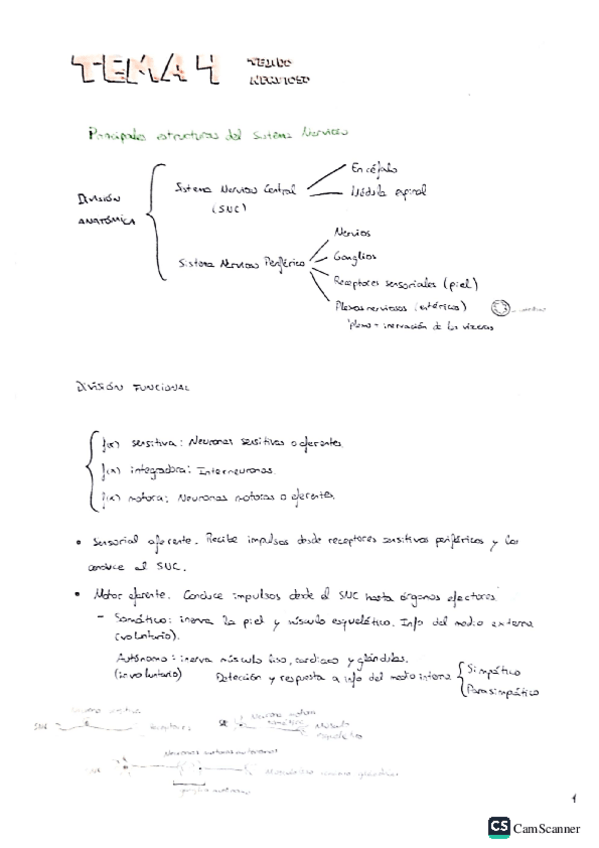 TEMA 4
TEJIDO
NERVIOSO
Principales estructuras del Sistema Nervioso
DIVISIÓN
ANATÓMICA
Sistema Nervioso Central
(SNC)
Encéfalo
Médula espinal
Sistema Nervioso Periférico
Nervios
Ganglios
Receptores sensoriales (piel)
Plexos nerviosos (entéricos)
*plexo = inervación de las vísceras
DIVISIÓN FUNCIONAL
f(x) sensitiva: Neuronas sensitivas o aferentes.
f(x) integradora: Interneuronas.
f(x) motora: Neuronas motoras o eferentes.
• Sensorial aferente. Recibe impulsos desde receptores sensitivos periféricos y los
conduce al SNC.
• Motor eferente. Conduce impulsos desde el SNC hasta órganos efectores.
- Somático: inerva la piel y músculo esquelético. Info del medio externo
(voluntario).
Autónomo: inerva músculo liso, cardiaco y glándulas.
(involuntario) Detección y respuesta a info del medio interno
Simpático
Parasimpático
SNC
Receptores
Neurona motora
somática
Músculo
esquelético
Neuronas motoras autónomas
SNC
ganglio autónomo
1
CS CamScanner